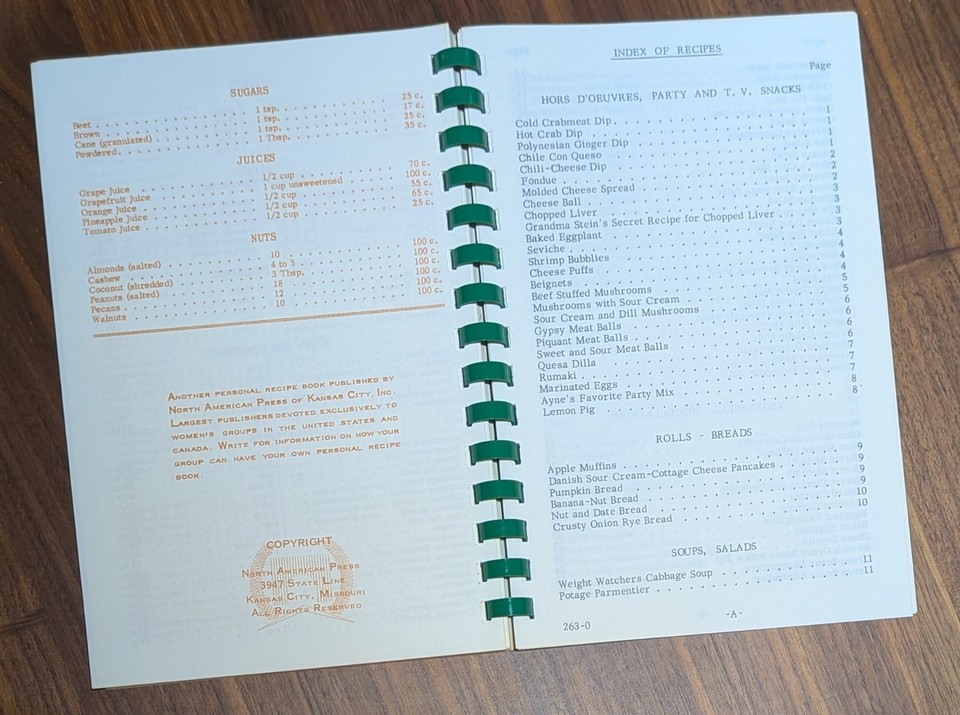 SUGARS
Beet . . . . . . . . . . 1 tsp. . . . . . . . . . . 25 c.
Brown . . . . . . . . . . 1 tsp. . . . . . . . . . . 17 c.
Cane (granulated) . . . . . . 1 tsp. . . . . . . . . . . 25 c.
Powdered . . . . . . . . . . 1 Tbsp. . . . . . . . . . . 35 c.
JUICES
Grape Juice . . . . . . . . 1/2 cup . . . . . . . . . . 70 c.
Grapefruit Juice . . . . . . 1 cup unsweetened . . . . . . 100 c.
Orange Juice . . . . . . . . 1/2 cup . . . . . . . . . . 55 c.
Pineapple Juice . . . . . . . 1/2 cup . . . . . . . . . . 65 c.
Tomato Juice . . . . . . . . 1/2 cup . . . . . . . . . . 25 c.
NUTS
Almonds (salted) . . . . . . 10 . . . . . . . . . . 100 c.
Cashew . . . . . . . . . . 4 to 5 . . . . . . . . . . 100 c.
Coconut (shredded) . . . . . . 3 Tbsp. . . . . . . . . . . 100 c.
Peanuts (salted) . . . . . . 18 . . . . . . . . . . 100 c.
Pecans . . . . . . . . . . 12 . . . . . . . . . . 100 c.
Walnuts . . . . . . . . . . 10 . . . . . . . . . . 100 c.
ANOTHER PERSONAL RECIPE BOOK PUBLISHED BY
NORTH AMERICAN PRESS OF KANSAS CITY, INC.
LARGEST PUBLISHERS DEVOTED EXCLUSIVELY TO
WOMEN'S GROUPS IN THE UNITED STATES AND
CANADA. WRITE FOR INFORMATION ON HOW YOUR
GROUP CAN HAVE YOUR OWN PERSONAL RECIPE
BOOK.
COPYRIGHT
NORTH AMERICAN PRESS
3947 STATE LINE
KANSAS CITY, MISSOURI
ALL RIGHTS RESERVED
INDEX OF RECIPES
Page
HORS D'OEUVRES, PARTY AND T. V. SNACKS
Cold Crabmeat Dip . . . . . . . . . . 1
Hot Crab Dip . . . . . . . . . . 1
Polynesian Ginger Dip . . . . . . . . . . 1
Chile Con Queso . . . . . . . . . . 1
Chili-Cheese Dip . . . . . . . . . . 2
Fondue . . . . . . . . . . 2
Molded Cheese Spread . . . . . . . . . . 2
Cheese Ball . . . . . . . . . . 3
Chopped Liver . . . . . . . . . . 3
Grandma Stein's Secret Recipe for Chopped Liver . . . . 3
Baked Eggplant . . . . . . . . . . 3
Seviche . . . . . . . . . . 4
Shrimp Bubblies . . . . . . . . . . 4
Cheese Puffs . . . . . . . . . . 4
Beignets . . . . . . . . . . 4
Beef Stuffed Mushrooms . . . . . . . . . . 5
Mushrooms with Sour Cream . . . . . . . . . . 5
Sour Cream and Dill Mushrooms . . . . . . . . . . 6
Gypsy Meat Balls . . . . . . . . . . 6
Piquant Meat Balls . . . . . . . . . . 6
Sweet and Sour Meat Balls . . . . . . . . . . 6
Quesa Dilla . . . . . . . . . . 7
Rumaki . . . . . . . . . . 7
Marinated Eggs . . . . . . . . . . 7
Ayne's Favorite Party Mix . . . . . . . . . . 8
Lemon Pig . . . . . . . . . . 8
ROLLS - BREADS
Apple Muffins . . . . . . . . . . 9
Danish Sour Cream-Cottage Cheese Pancakes . . . . . . 9
Pumpkin Bread . . . . . . . . . . 9
Banana-Nut Bread . . . . . . . . . . 9
Nut and Date Bread . . . . . . . . . . 10
Crusty Onion Rye Bread . . . . . . . . . . 10
SOUPS, SALADS
Weight Watchers Cabbage Soup . . . . . . . . . . 11
Potage Parmentier . . . . . . . . . . 11
263-0
-A-